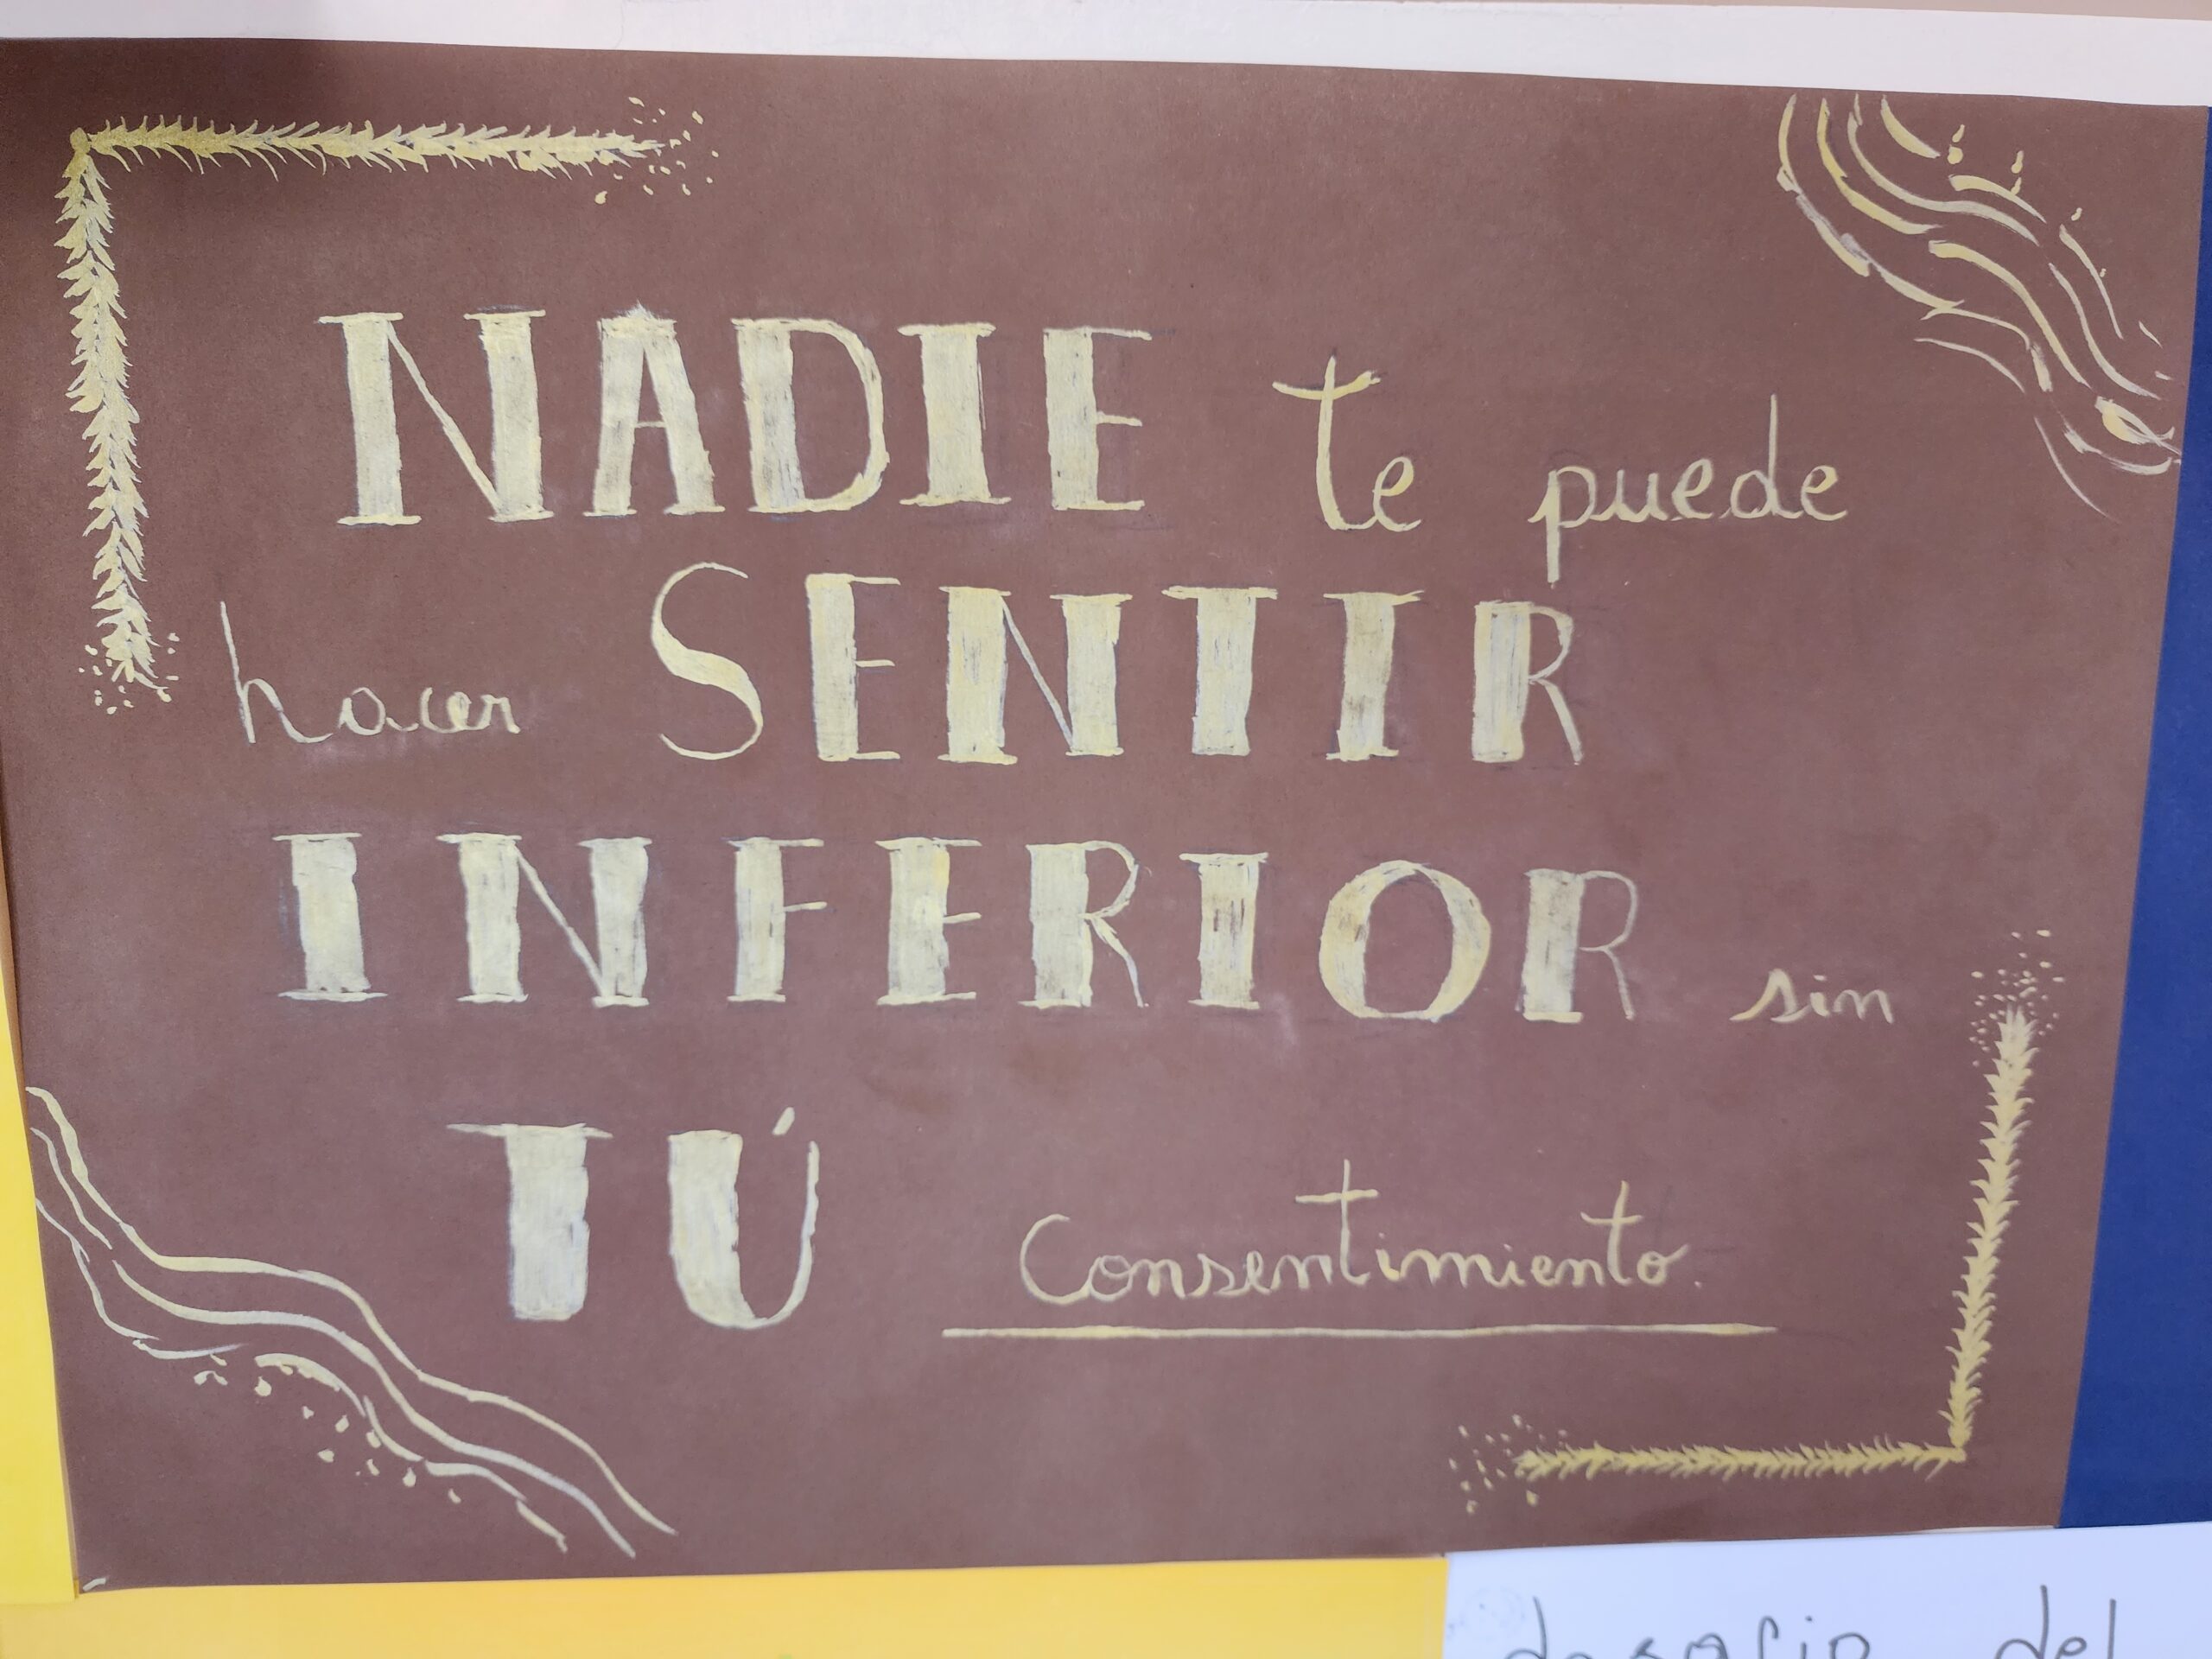 NADIE te puede
hacer SENTIR
INFERIOR sin
TÚ Consentimiento.
del